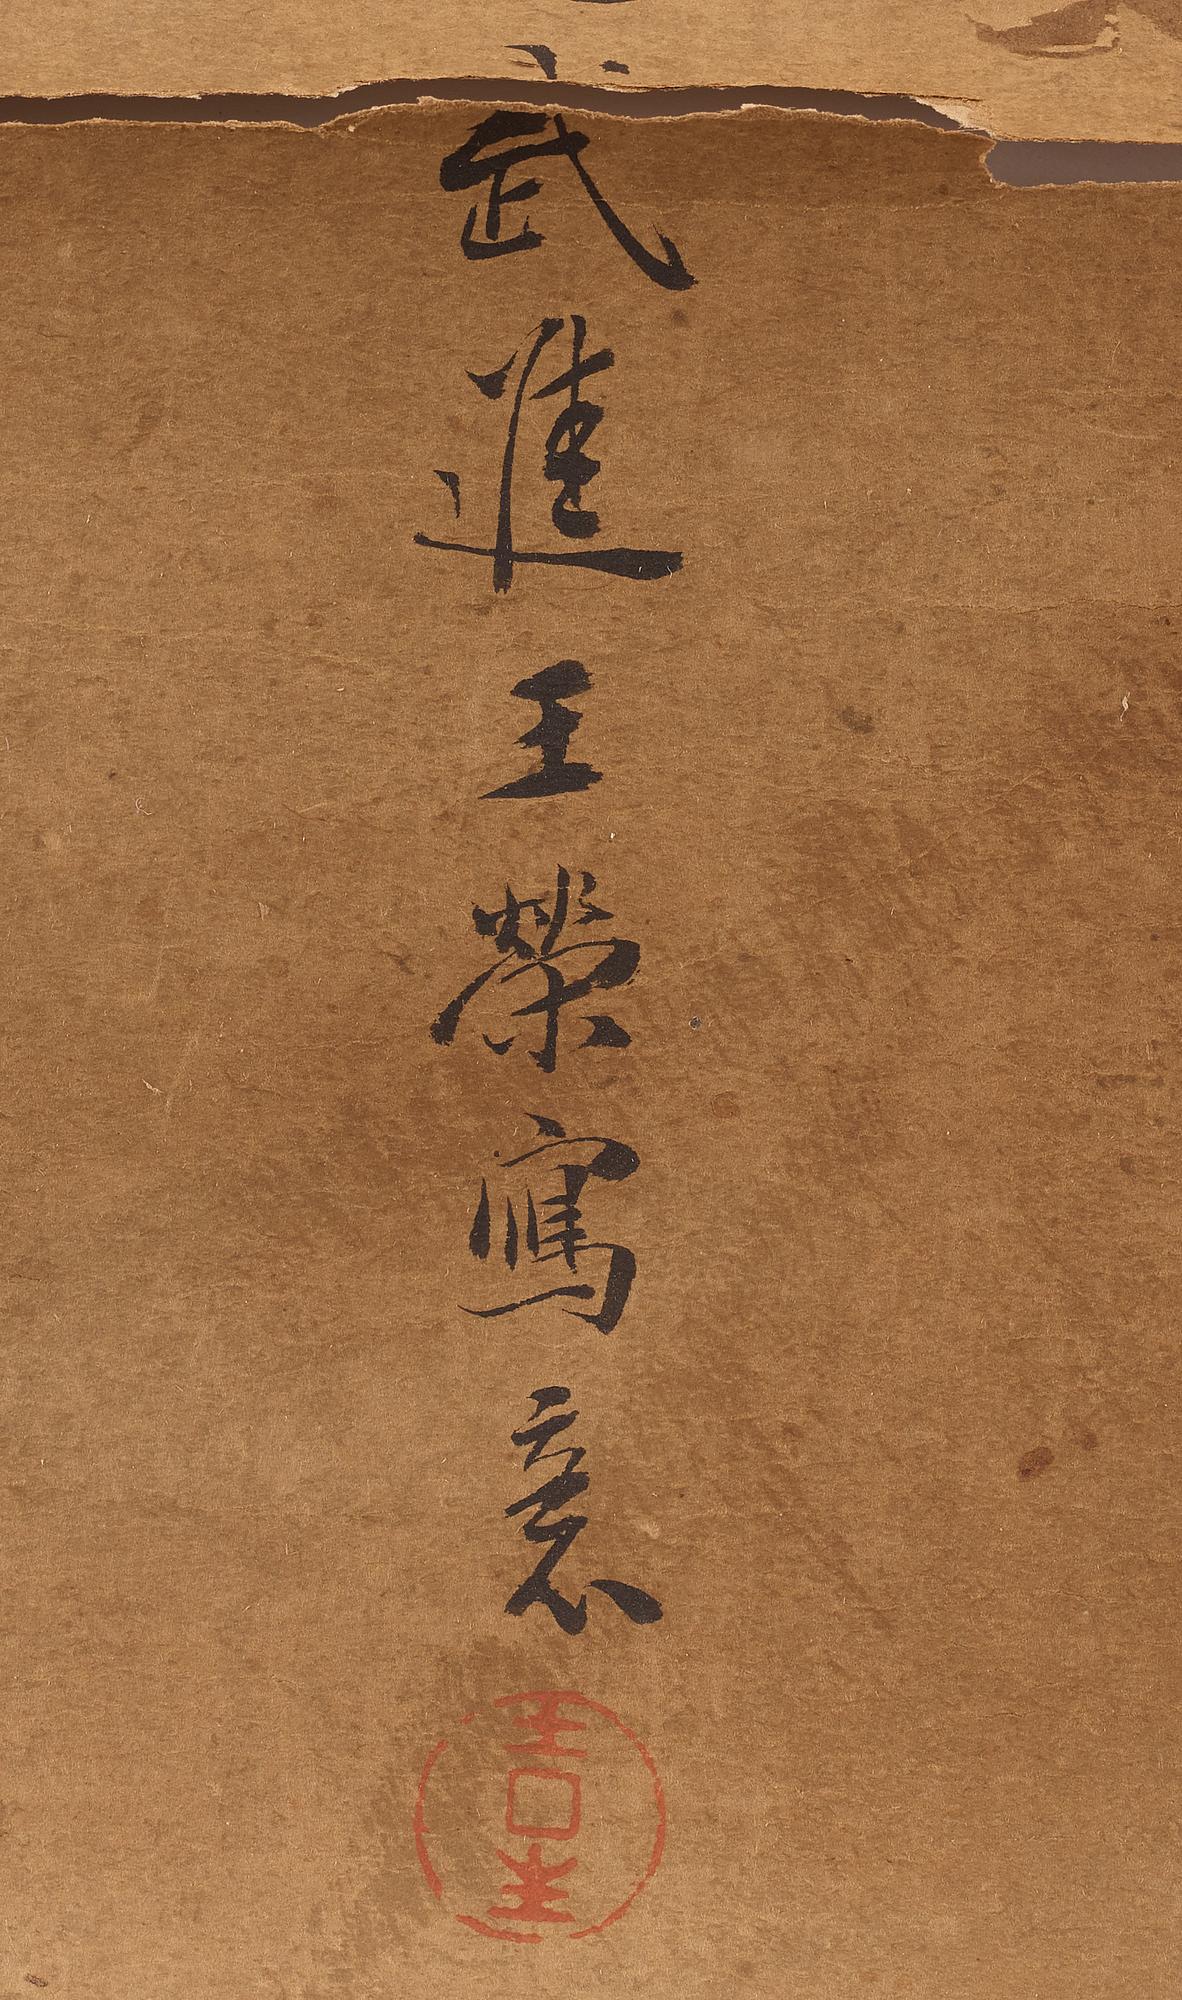 武進王榮寫意